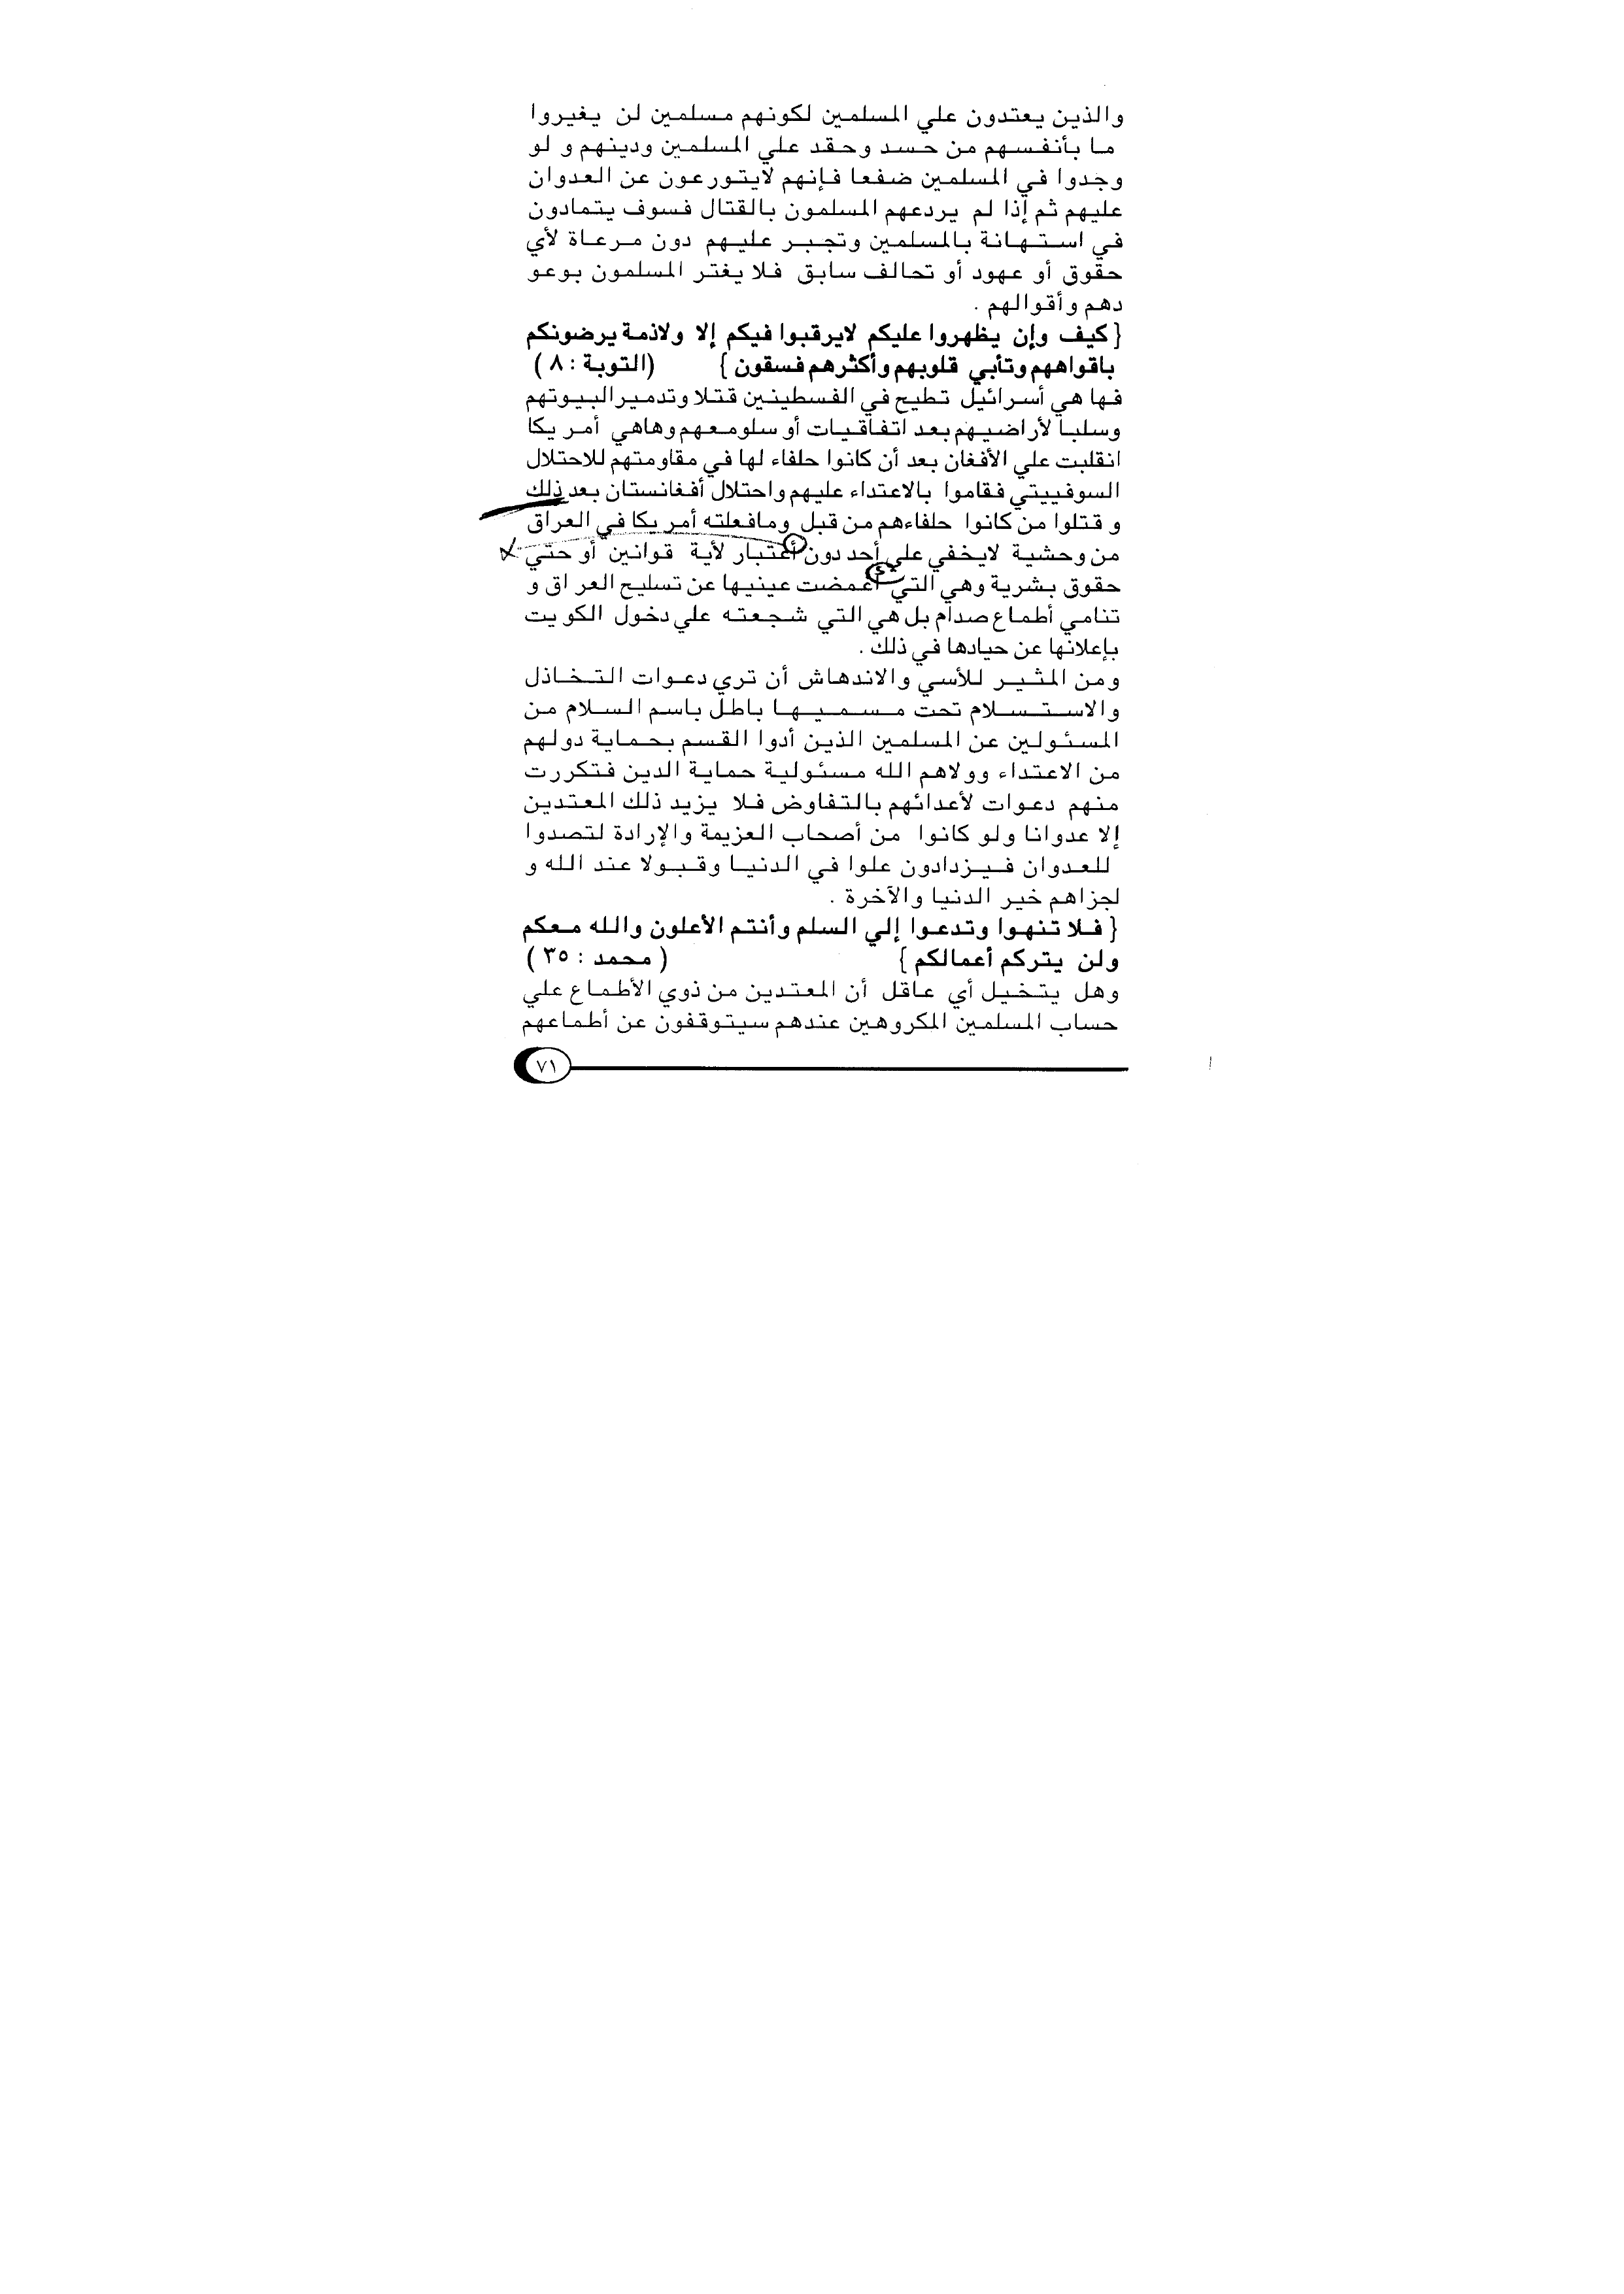 والذين يعتدون علي المسلمين لكونهم مسلمين لن يغيروا
ما بأنفسهم من حسد وحقد علي المسلمين ودينهم و لو
وجدوا في المسلمين ضفعا فإنهم لايتورعون عن العدوان
عليهم ثم إذا لم يردعهم المسلمون بالقتال فسوف يتمادون
في استهانة بالمسلمين وتجبر عليهم دون مرعاة لأي
حقوق أو عهود أو تحالف سابق فلا يغتر المسلمون بوعو
دهم وأقوالهم .
{ كيف وإن يظهروا عليكم لايرقبوا فيكم إلا ولاذمة يرضونكم
باقواههم وتأبي قلوبهم وأكثرهم فسقون } (التوبة : ٨ )
فها هي أسرائيل تطيح في الفسطينين قتلا وتدمير البيوتهم
وسلبا لأراضيهم بعد اتفاقيات أو سلومعهم وهاهي أمريكا
انقلبت علي الأفغان بعد أن كانوا حلفاء لها في مقاومتهم للاحتلال
السوفييتي فقاموا بالاعتداء عليهم واحتلال أفغانستان بعد ذلك
و قتلوا من كانوا حلفاءهم من قبل ومافعلته أمريكا في العراق
من وحشية لايخفي علي أحد دون أعتبار لأية قوانين أو حتي
حقوق بشرية وهي التي أغمضت عينيها عن تسليح العراق و
تنامي أطماع صدام بل هي التي شجعته علي دخول الكويت
بإعلانها عن حيادها في ذلك .
ومن المثير للأسي والاندهاش أن تري دعوات التخاذل
والاستسلام تحت مسميها باطل باسم السلام من
المسئولين عن المسلمين الذين أدوا القسم بحماية دولهم
من الاعتداء وولاهم الله مسئولية حماية الدين فتكررت
منهم دعوات لأعدائهم بالتفاوض فلا يزيد ذلك المعتدين
إلا عدوانا ولو كانوا من أصحاب العزيمة والإرادة لتصدوا
للعدوان فيزدادون علوا في الدنيا وقبولا عند الله و
لجزاهم خير الدنيا والآخرة .
{ فلا تنهوا وتدعوا إلي السلم وأنتم الأعلون والله معكم
ولن يتركم أعمالكم } ( محمد : ٣٥ )
وهل يتخيل أي عاقل أن المعتدين من ذوي الأطماع علي
حساب المسلمين المكروهين عندهم سيتوقفون عن أطماعهم
٧١